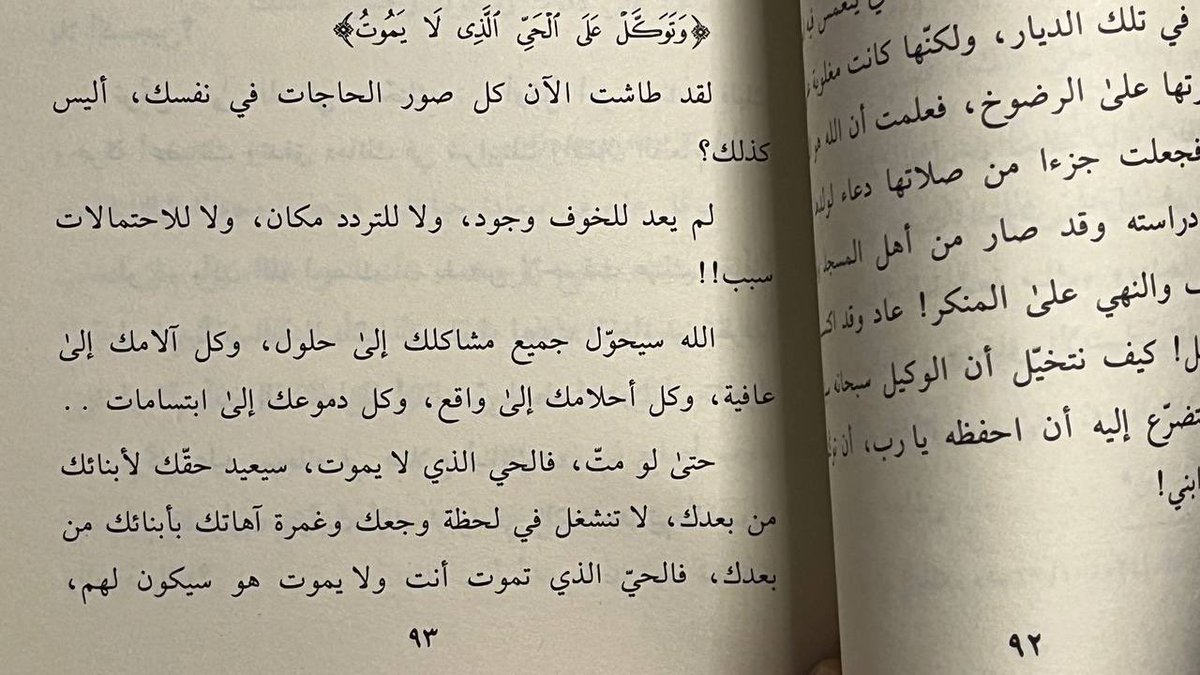 في تلك الديار، ولكنّها كانت مغلوبة
علىٰ الرضوخ، فعلمت أن الله هو
فجعلت جزءا من صلاتها دعاء
دراسته وقد صار من أهل المسجد
والنهي علىٰ المنكر! عاد وقد
كيف نتخيّل أن الوكيل سبحانه
إليه أن احفظه يا رب، أن
ابني!
٩٢
﴿وَتَوَكَّلْ عَلَى ٱلْحَيِّ ٱلَّذِى لَا يَمُوتُ﴾
لقد طاشت الآن كل صور الحاجات في نفسك، أليس
كذلك؟
لم يعد للخوف وجود، ولا للتردد مكان، ولا للاحتمالات
سبب!!
الله سيحوّل جميع مشاكلك إلىٰ حلول، وكل آلامك إلىٰ
عافية، وكل أحلامك إلىٰ واقع، وكل دموعك إلىٰ ابتسامات ..
حتىٰ لو متّ، فالحي الذي لا يموت، سيعيد حقّك لأبنائك
من بعدك، لا تنشغل في لحظة وجعك وغمرة آهاتك بأبنائك من
بعدك، فالحيّ الذي تموت أنت ولا يموت هو سيكون لهم،
٩٣